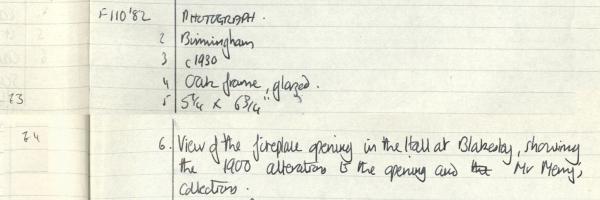 F110'82 PHOTOGRAPH.
2 Birmingham
3 c1930
4 Oak frame, glazed.
23 5 5¾ x 6¾"
24 6. View of the fireplace opening in the Hall at Blakesley, showing
the 1900 alterations to the opening and the Mr Merry,
collections.